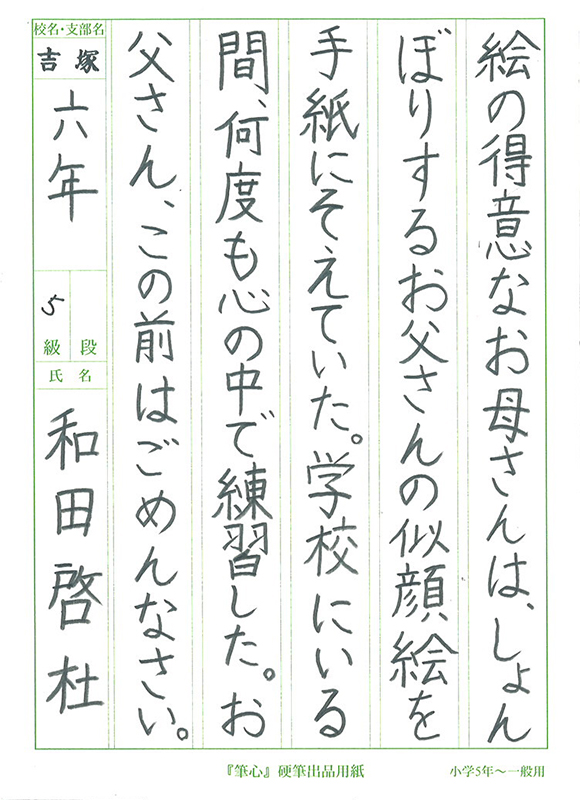 絵の得意なお母さんは、しょん
ぼりするお父さんの似顔絵を
手紙にそえていた。学校にいる
間、何度も心の中で練習した。お
父さん、この前はごめんなさい。
校名・支部名
吉塚
六年
5
級 段
氏名
和田啓杜
『筆心』硬筆出品用紙
小学5年～一般用